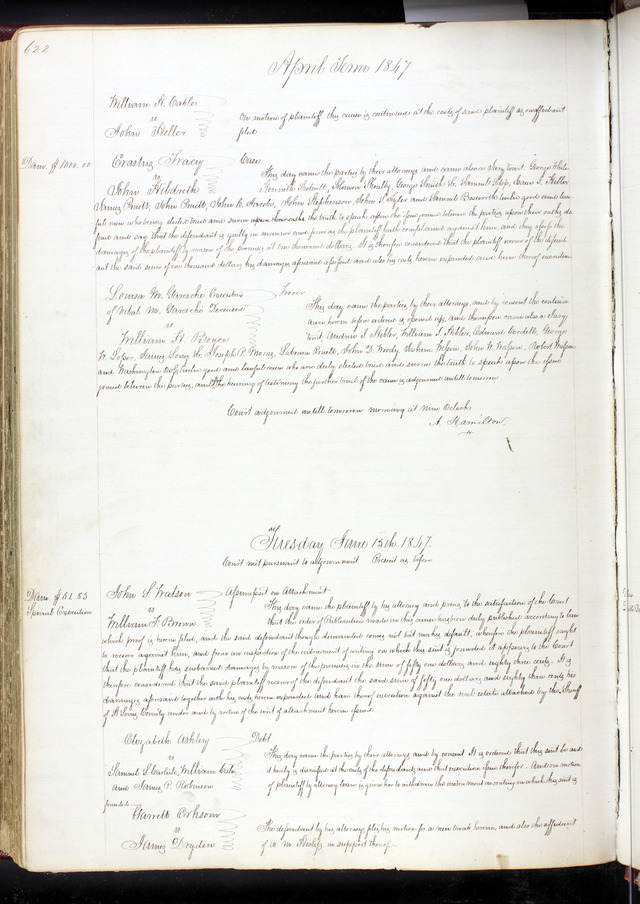 622
April Term 1847
William H. Cable
vs
John Heller
On motion of plaintiff this cause is continued at the costs of said plaintiff as on affidavit
filed
Dam. $1000.00
Erastus Tracy
vs
John Hildreth
Case
This day came the parties by their attorneys and came also a Jury to wit, George White
James Pruitt, John Pruitt, John B. Jacobs, John Stephenson, John and Samuel Bosworth twelve good and law
ful men who being elected tried and sworn the truth to speak upon the issue joined between the parties upon their oaths do
find and say that the defendant is guilty in manner and form as the plaintiff hath complained against him, and they assess the
damages of the plaintiff by reason of the premises at one thousand dollars. It is therefore considered that the plaintiff recover of the defend
ant the said sum of one thousand dollars his damages aforesaid assessed and also his costs herein expended and have thereof execution
Louisa M. Executrix
of M. Deceased
vs
William H. Boyce
Trover
This day came the parties by their attorneys, and by consent the
order herein before entered is opened up, and thereupon came also a Jury
to wit, Andrew J. Hibler, William J. Hibler, Edward Cordell, George
W. Lopez, James Long Sr, Joseph P. Morris, Pruitt, John D. Woody, John W. Watson, Robert Watson
and Washington twelve good and lawful men who are duly elected tried and sworn the truth to speak upon the issue
joined between the parties, and the hearing of testimony the further trial of the cause is adjourned untill tomorrow
Court adjourned untill tomorrow morning at nine Oclock
A. Hamilton
Tuesday June 15th 1847
Court met pursuant to adjournment Present as before
Dam. $51.83
Special Execution
John S. Watson
vs
William F. Brown
Assumpsit on Attachment
This day came the plaintiff by his attorney and proves to the satisfaction of the Court
that the order of Publication made in this cause has been duly published according to law
which proof is herein filed, and the said defendant though demanded comes not but makes default, wherefore the plaintiff ought
to recover against him, and from an inspection of the instrument of writing on which this suit is founded it appears to the Court
that the plaintiff has sustained damages by reason of the premises in the sum of fifty one dollars, and eighty three cents. It is
therefore considered that the said plaintiff recover of the defendant the said sum of fifty one dollars and eighty three cents his
damages aforesaid together with his costs herein expended and have thereof execution against the real estate attached by the Sheriff
of St Louis County under and by virtue of the writ of attachment herein issued
Elizabeth Ashley
vs
Samuel S. Carlisle, William
and James P. Robinson
Debt
This day came the parties by their attorneys and by consent It is ordered that this suit be and
it hereby is dismissed at the costs of the defendants, and that execution issue therefor. And on motion
of plaintiff by attorney leave is given her to withdraw the instrument of writing on which this suit is
founded
Garrett
vs
James Dryden
The defendant by his attorneys files his motion for a new trial herein, and also the affidavit
of W. M. in support thereof